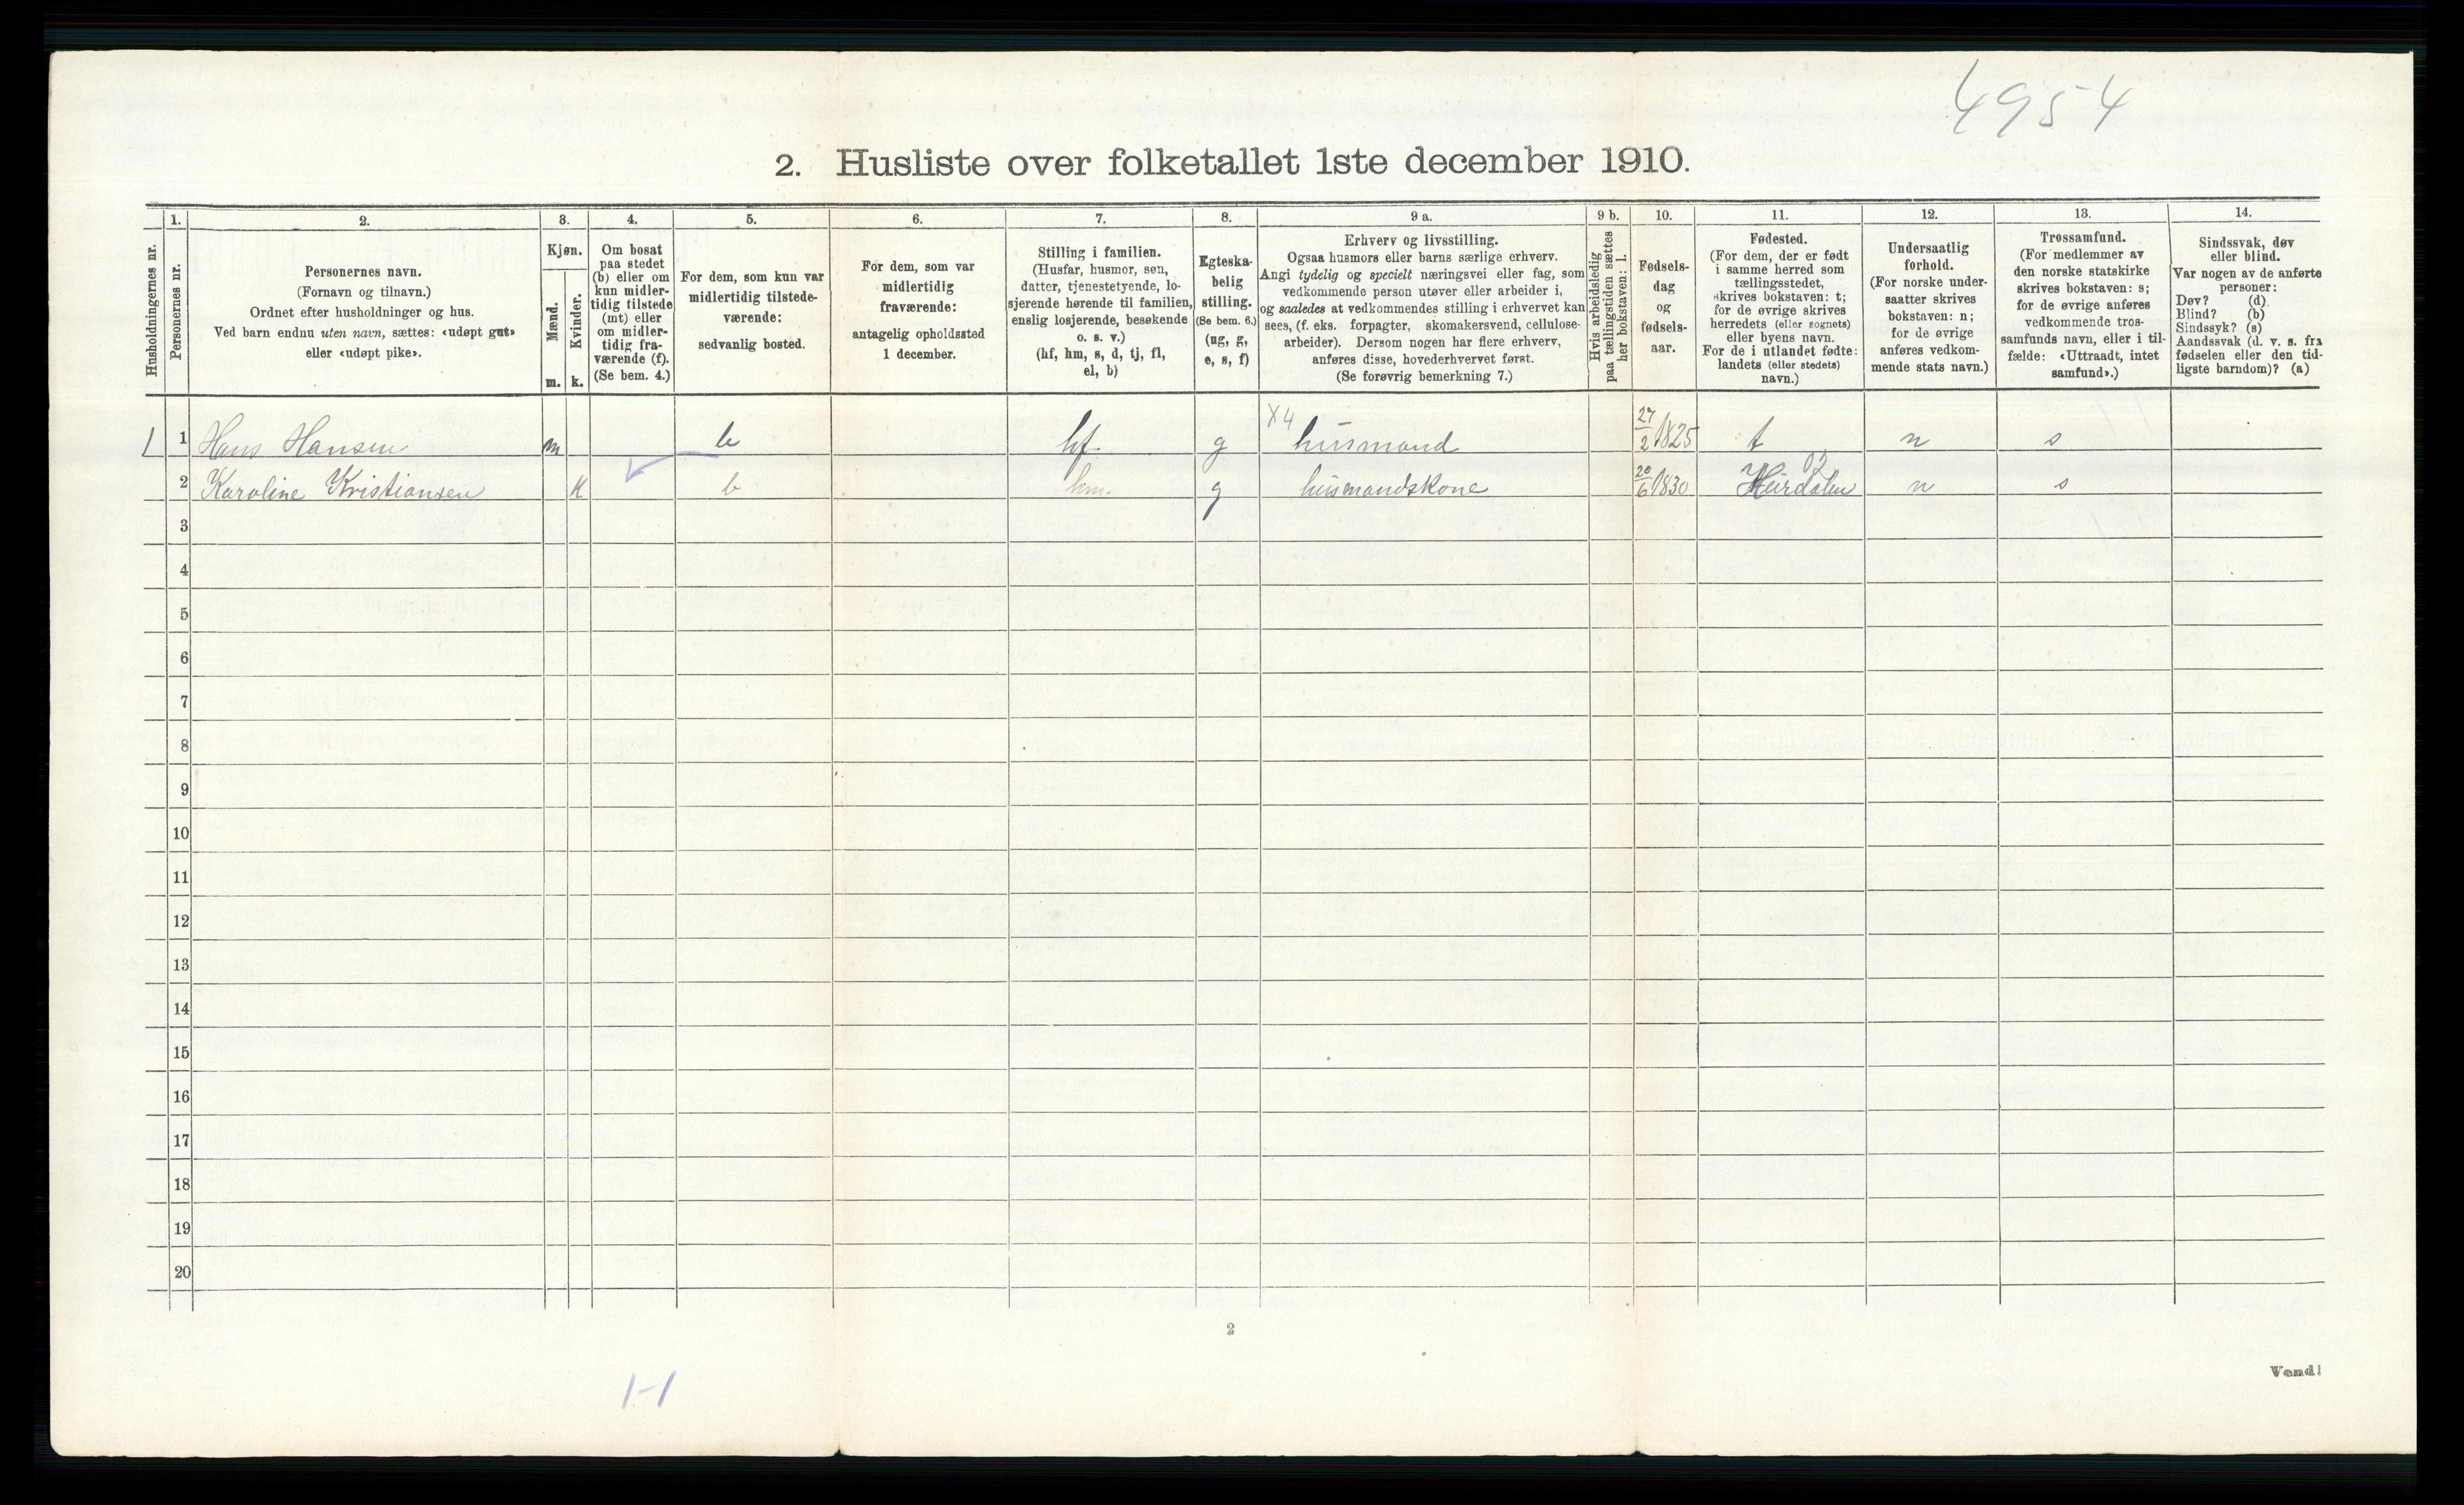 4954
2. Husliste over folketallet 1ste december 1910.
1. 2. 3. 4. 5. 6. 7. 8. 9 a. 9 b. 10. 11. 12. 13. 14.
Husholdningernes nr.
Personernes nr.
Personernes navn.
(Fornavn og tilnavn.)
Ordnet efter husholdninger og hus.
Ved barn endnu uten navn, sættes: «udøpt gut»
eller «udøpt pike».
Kjøn.
Mænd.
Kvinder.
m. k.
Om bosat
paa stedet
(b) eller om
kun midler-
tidig tilstede
(mt) eller
om midler-
tidig fra-
værende (f).
(Se bem. 4.)
For dem, som kun var
midlertidig tilstede-
værende:
sedvanlig bosted.
For dem, som var
midlertidig
fraværende:
antagelig opholdssted
1 december.
Stilling i familien.
(Husfar, husmor, søn,
datter, tjenestetyende, lo-
sjerende hørende til familien,
enslig losjerende, besøkende
o. s. v.)
(hf, hm, s, d, tj, fl,
el, b)
Egteska-
belig
stilling.
(Se bem. 6.)
(ug, g,
e, s, f)
Erhverv og livsstilling.
Ogsaa husmors eller barns særlige erhverv.
Angi tydelig og specielt næringsvei eller fag, som
vedkommende person utøver eller arbeider i,
og saaledes at vedkommendes stilling i erhvervet kan
sees, (f. eks. forpagter, skomakersvend, cellulose-
arbeider). Dersom nogen har flere erhverv,
anføres disse, hovederhvervet først.
(Se forøvrig bemerkning 7.)
Hvis arbeidsledig
paa tællingstiden sættes
her bokstaven: l.
Fødsels-
dag
og
fødsels-
aar.
Fødested.
(For dem, der er født
i samme herred som
tællingsstedet,
skrives bokstaven: t;
for de øvrige skrives
herredets (eller sognets)
eller byens navn.
For de i utlandet fødte:
landets (eller stedets)
navn.)
Undersaatlig
forhold.
(For norske under-
saatter skrives
bokstaven: n;
for de øvrige
anføres vedkom-
mende stats navn.)
Trossamfund.
(For medlemmer av
den norske statskirke
skrives bokstaven: s;
for de øvrige anføres
vedkommende tros-
samfunds navn, eller i til-
fælde: «Uttraadt, intet
samfund».)
Sindssvak, døv
eller blind.
Var nogen av de anførte
personer:
Døv? (d)
Blind? (b)
Sindssyk? (s)
Aandssvak (d. v. s. fra
fødselen eller den tid-
ligste barndom)? (a)
X4
1 1 Hans Hansen m b hf. g husmand 27/2 1825 t n s
2 Karoline Kristiansen k b hm. g husmandskone 20/6 1830 Hurdalen n s
3
4
5
6
7
8
9
10
11
12
13
14
15
16
17
18
19
20
2
Vend!
1-1